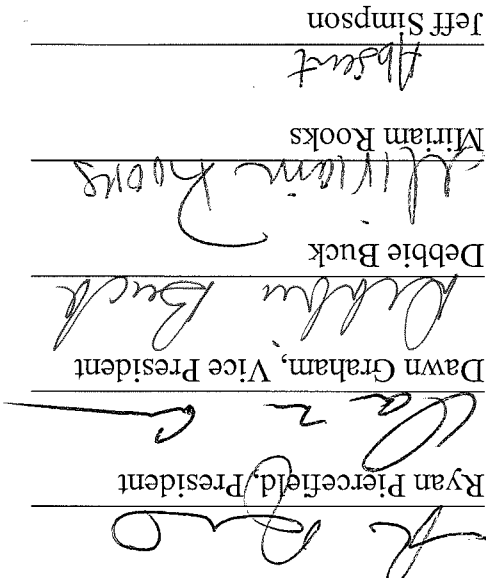 Ryan Piercefield, President
Dawn Graham, Vice President
Debbie Buck
Debbie Buck
Miriam Rooks
Miriam Rooks
Absent
Jeff Simpson